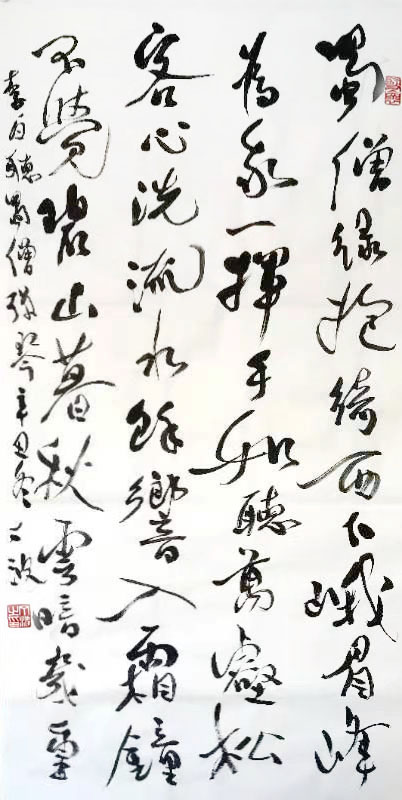 蜀僧綠抱綺西下峨眉峰
為我一揮手如聽萬壑松
客心洗流水餘響入霜鐘
不覺碧山暮秋雲暗幾重
李白聽蜀僧彈琴辛丑冬波